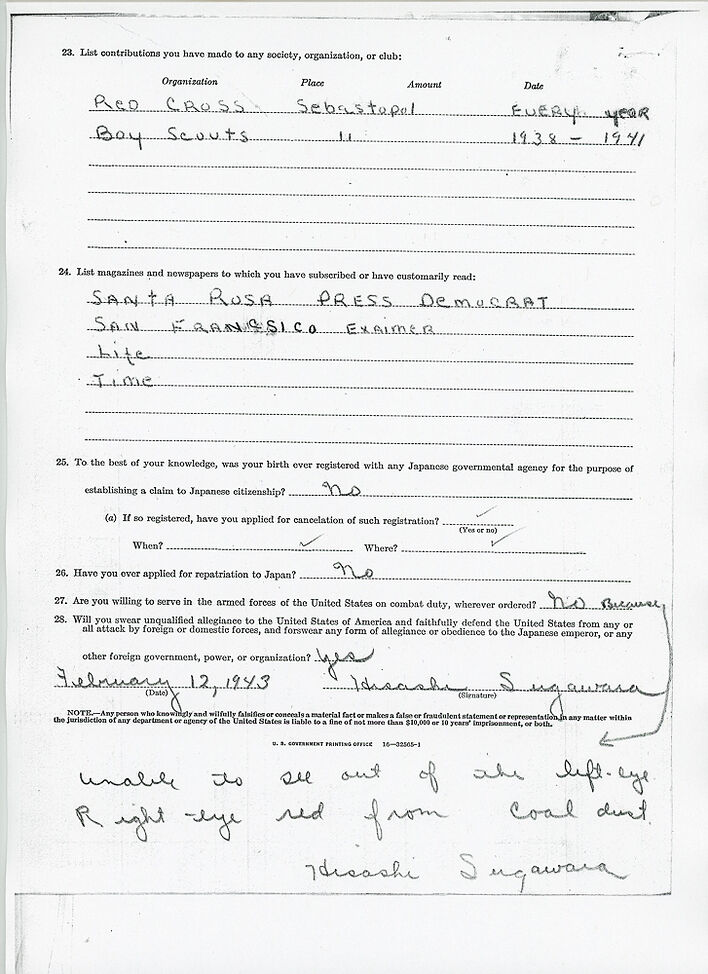 23. List contributions you have made to any society, organization, or club:
Organization Place Amount Date
RED CROSS Sebastopol EVERY yEAR
Boy Scouts 11 1938 – 1941
24. List magazines and newspapers to which you have subscribed or have customarily read:
SANTA ROSA PRESS DEMOCRAT
SAN FRANCSICO EXAIMER
Life
Time
25. To the best of your knowledge, was your birth ever registered with any Japanese governmental agency for the purpose of
establishing a claim to Japanese citizenship? No
(a) If so registered, have you applied for cancelation of such registration? ✓
(Yes or no)
When? ✓ Where? ✓
26. Have you ever applied for repatriation to Japan? No
27. Are you willing to serve in the armed forces of the United States on combat duty, wherever ordered? No Because
28. Will you swear unqualified allegiance to the United States of America and faithfully defend the United States from any or
all attack by foreign or domestic forces, and forswear any form of allegiance or obedience to the Japanese emperor, or any
other foreign government, power, or organization? yes
February 12, 1943 Hisashi Sugawara
(Date) (Signature)
NOTE.—Any person who knowingly and wilfully falsifies or conceals a material fact or makes a false or fraudulent statement or representation in any matter within
the jurisdiction of any department or agency of the United States is liable to a fine of not more than $10,000 or 10 years' imprisonment, or both.
U. S. GOVERNMENT PRINTING OFFICE 16—32505-1
unable to see out of the left-eye
Right-eye red from coal dust.
Hisashi Sugawara